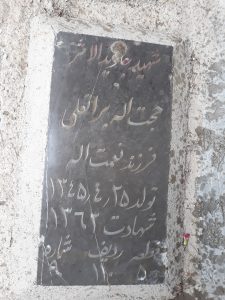 شهید جاوید الاثر
حجت اله براتعلی
فرزند نعمت اله
تولد ۱۳۴۵٫۴٫۲۵
شهادت ۱۳۶۲
قطعه ردیف شماره
۵۰ ۱۲ ۹